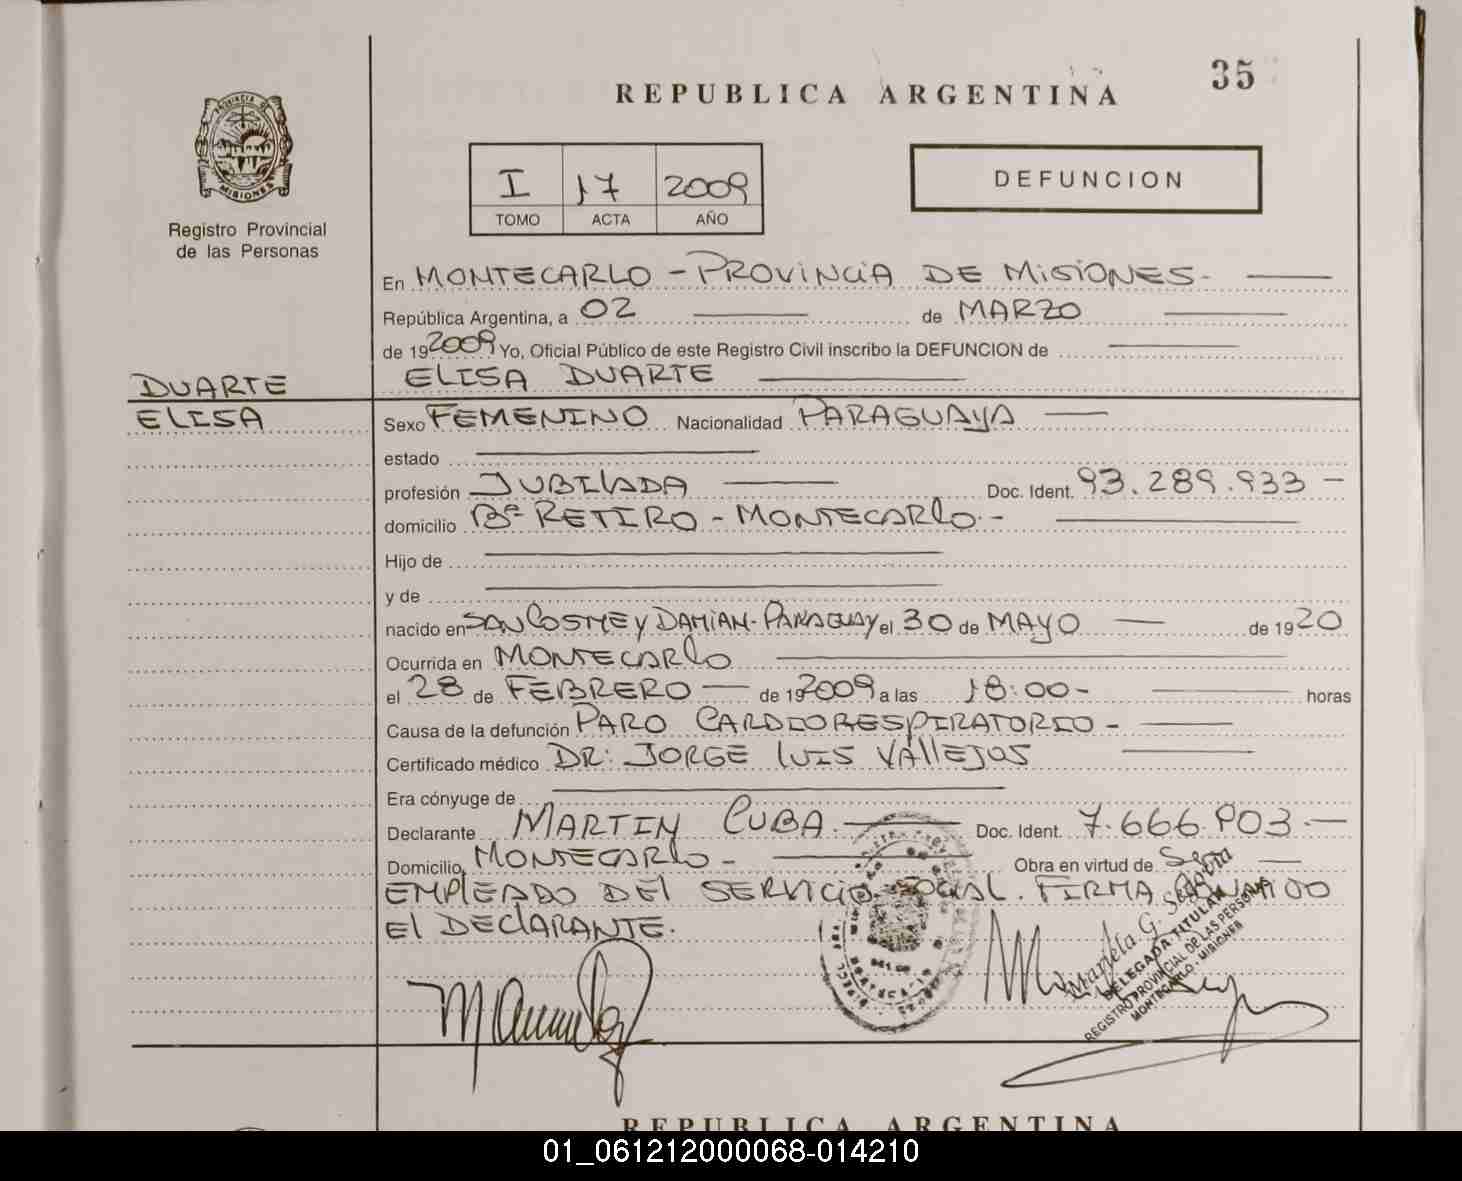 35
REPUBLICA ARGENTINA
PROVINCIA DE
MISIONES
Registro Provincial
de las Personas
I 17 2009
TOMO ACTA AÑO
DEFUNCION
En MONTECARLO - PROVINCIA DE MISIONES-
República Argentina, a 02 de MARZO
de 19 2009 Yo, Oficial Público de este Registro Civil inscribo la DEFUNCION de
DUARTE ELISA DUARTE
ELISA
Sexo FEMENINO Nacionalidad PARAGUAYA
estado
profesión JUBILADA Doc. Ident. 93.289.933 -
domicilio Bº RETIRO - MONTECARLO -
Hijo de
y de
nacido en SAN COSME y DAMIAN - PARAGUAY el 30 de MAYO de 1920
Ocurrida en MONTECARLO
el 28 de FEBRERO de 19 2009 a las 18:00- horas
Causa de la defunción PARO CARDIORESPIRATORIO -
Certificado médico DR: JORGE LUIS VALLEJOS
Era cónyuge de
Declarante MARTIN CUBA Doc. Ident. 7.666.903.-
Domicilio MONTECARLO - Obra en virtud de Ser
EMPLEADO DEL SERVICIO SOCIAL. FIRMA
EL DECLARANTE.
Mariela G. Segovia
DELEGADA TITULAR
REGISTRO PROVINCIAL DE LAS PERSONAS
MONTECARLO - MISIONES
REPUBLICA ARGENTINA
01_061212000068-014210